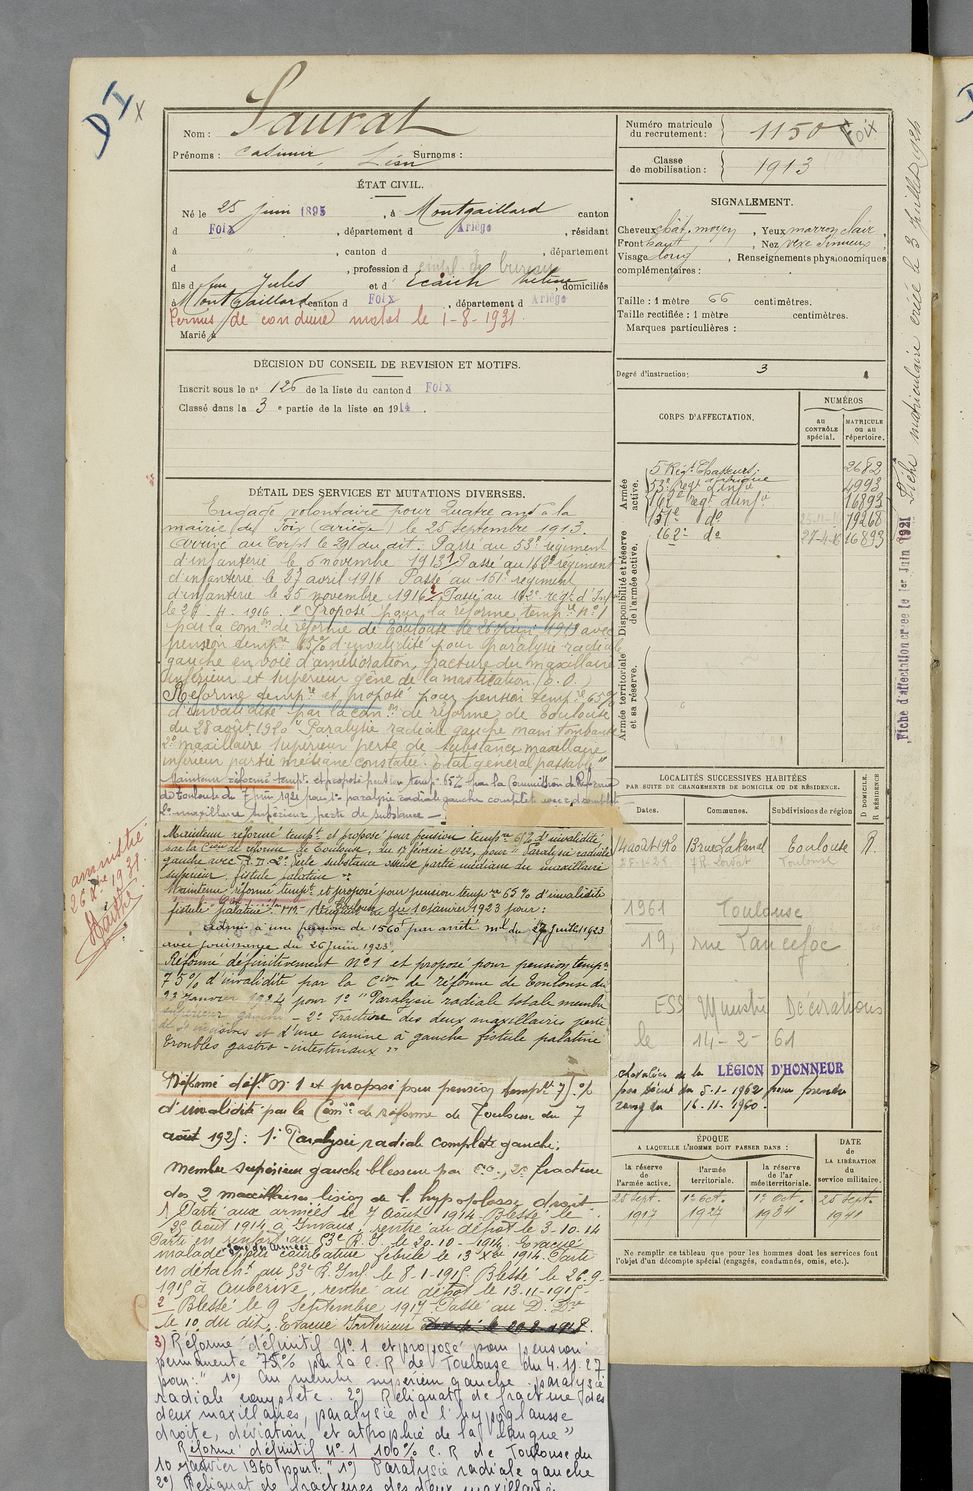 DI x
Nom : Saurat
Prénoms : Casimir, Léon Surnoms :
ÉTAT CIVIL.
Né le 25 juin 1895, à Montgaillard canton
d Foix, département d Ariège, résidant
à " , canton d , département
d , profession d empl. de bureau
fils d feu Jules et d' Ecaich Hélène, domiciliés
à Montgaillard, canton d Foix, département d Ariège
Permis de conduire motos le 1-8-1931
Marié à
DÉCISION DU CONSEIL DE REVISION ET MOTIFS.
Inscrit sous le n° 126 de la liste du canton d Foix
Classé dans la 3 e partie de la liste en 1914.
DÉTAIL DES SERVICES ET MUTATIONS DIVERSES.
Engagé volontaire pour Quatre ans à la
mairie de Foix (Ariège) le 25 septembre 1913.
Arrivé au Corps le 29 du dit. Passé au 53e régiment
d'infanterie le 6 novembre 1913. Passé au 162e régiment
d'infanterie le 27 avril 1916 Passé au 151e régiment
d'infanterie le 25 novembre 1916. Passé au 162e regt d'Inf
le 26-11-1916. "Proposé pour la réforme tempre n° 1
par la comon de réforme de Toulouse le 26 juin 1919 avec
pension tempre 65% d'invalidité pour paralysie radiale
gauche en voie d'amélioration, fracture du maxillaire
inférieur et supérieur gêne de la mastication (o.o.)
Réformé tempre et proposé pour pension tempre 65%
d'invalidité par la comon de réforme de Toulouse
du 28 août 1920 "Paralysie radiale gauche main tombante
2° maxillaire supérieur perte de substance maxillaire
inférieur partie médiane constatée. Etat général passable"
Maintenu réformé tempre et proposé pension tempre 65% par la Commission de Réforme
de Toulouse du 7 juin 1921 pour 1° paralysie radiale gauche complète avec r.d. complète
2° maxillaire supérieur perte de substance —
Maintenu réformé tempt et proposé pour pension tempre 65% d'invalidité
par la Cion de réforme de Toulouse, du 17 février 1922, pour "Paralysie radiale
gauche avec R.D. 2° Perte substance osseuse partie médiane du maxillaire
supérieur, fistule palatine "
Maintenu réformé tempt et proposé pour pension tempre 65% d'invalidité
fistule palatine. du 10 janvier 1923 pour :
Admis à une pension de 1560f par arrêté mel du 27 juillet 1923
avec jouissance du 26 juin 1923
Réformé définitivement N°1 et proposé pour pension tempre
75% d'invalidité par la Cion de réforme de Toulouse du
22 janvier 1924 pour 1° "Paralysie radiale totale membre
supérieur gauche — 2° Fracture des deux maxillaires perte
de incisives et d'une canine à gauche fistule palatine
troubles gastro-intestinaux "
Réformé défif N°1 et proposé pour pension tempre 75%
d'invalidité par la Comon de réforme de Toulouse du 7
août 1925 : 1° Paralysie radiale complète gauche,
membre supérieur gauche blessure par , 2° fracture
des 2 maxillaires lésion de l'hypoglosse droit
1 Parti aux armées le 7 Août 1914 Blessé le
25 Août 1914 à , rentré au dépôt le 3.10.14
Parti en renfort au 53e R.I. le 20-10-1914. Evacué
malade pour courbature fébrile le 13 Xbre 1914. Parti
en détacht au 53e R. Inf. le 8-1-1915. Blessé le 26-9-
1915 à Auberive, rentré au dépôt le 13-11-1915
2 Blessé le 9 Septembre 1917 Passé au D. Dre
le 10 du dit. Evacué Intérieur
3) Réformé définitif N° 1 et proposé pour pension
permanente 75% par la C.R de Toulouse du 4.11.27
pour : " 1°) Au membre supérieur gauche paralysie
radiale complète. 2°) Reliquat de fracture des
deux maxillaires, paralysie de l'hypoglosse
droite, déviation et atrophie de la langue"
Réformé définitif N° 1 100% C.R de Toulouse du
10 janvier 1960 pour : " 1°) Paralysie radiale gauche
2°) Reliquat de fractures des deux maxillaires
amnistie
26 Xbre 1931.
Numéro matricule du recrutement : 1150 Foix
Classe de mobilisation : 1913
SIGNALEMENT.
Cheveux chât. moyen, Yeux marron clair,
Front haut, Nez vexe sinueux,
Visage long, Renseignements physionomiques
complémentaires :
Taille : 1 mètre 66 centimètres.
Taille rectifiée : 1 mètre centimètres.
Marques particulières :
Degré d'instruction : 3
CORPS D'AFFECTATION.
NUMÉROS
au CONTRÔLE spécial.
MATRICULE ou au répertoire.
Armée active.
5 Régt Chasseurs d'Afrique 2683
53e regt d'infie 4993
162e regt d'infie 16893
151e do 19268
162e do 27-4-16 16893
Disponibilité et réserve de l'armée active.
Armée territoriale et sa réserve.
LOCALITÉS SUCCESSIVES HABITÉES
PAR SUITE DE CHANGEMENTS DE DOMICILE OU DE RÉSIDENCE.
Dates. Communes. Subdivisions de région D DOMICILE. R RÉSIDENCE
14 août 1920 13 rue Lakanal Toulouse R.
Toulouse
1961 Toulouse
19, rue Lancefoc
ESS Ministre Décorations
le 14-2-61
Chevalier de la LÉGION D'HONNEUR
par décret du 5-1-1962 pour prendre
rang du 16-11-1960.
ÉPOQUE
A LAQUELLE L'HOMME DOIT PASSER DANS :
la réserve de l'armée active.
l'armée territoriale.
la réserve de l'armée territoriale.
DATE de LA LIBÉRATION du service militaire.
25 Sept. 1917
1er Oct. 1927
1er Oct. 1934
25 Sept. 1941
Ne remplir ce tableau que pour les hommes dont les services font
l'objet d'un décompte spécial (engagés, condamnés, omis, etc.).
Fiche matriculaire créée le 3 juillet 1924
Fiche d'affectation créée le 1er Juin 1921